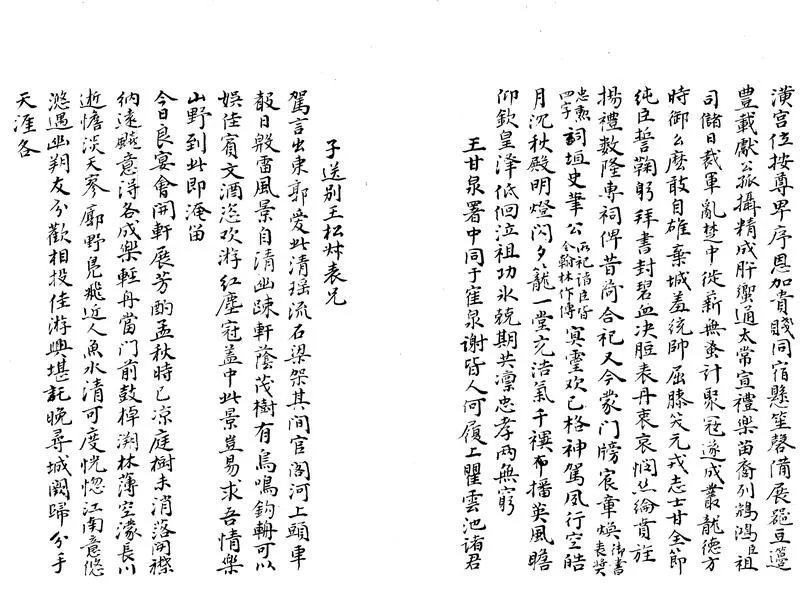 潢宫位按尊卑序恩加貴賤同宿懸笙磬備展罍豆籩
豊載獻公孤攝精成肝蠁通太常宣禮樂苗裔列鵷鴻臣祖
司儲日裁軍亂楚中徙薪無蚤計聚寇遂成叢龍德方
時御么麼敢自雄棄城羞統帥屈膝笑元戎志士甘全節
純臣誓鞠躬拜書封碧血决脰表丹衷哀憫絲綸賁旌
揚禮數隆專祠俾昔尚合祀又今蒙門牓宸章煥御書表奬
忠勲四字詞垣史筆公西祀諸臣皆令翰林作傳冥靈欢已格神駕風行空皓
月沉秋殿明燈闪夕籠一堂充浩氣千禩布播英風瞻
仰欽皇澤低佪泣祖功永兢期共凛忠孝兩無窮
王甘泉署中同于寉泉謝皆人何履上瞿雲池諸君
子送别王松牀表兄
駕言出東郭愛此清瑶流石梁架其間官閣河上頭車
轂日殷雷風景自清幽疎軒蔭茂樹有鳥鳴鈎輈可以
娱佳賓文酒恣欢游紅塵冠盖中此景豈易求吾情樂
山野到此即淹留
今日良宴會開軒展芳酌孟秋時已凉庭樹未消落開襟
納遠飇意浔各成樂輕舟當門前鼓棹溯林薄空濛長川
逝憺淡天寥廓野凫飛近人魚水清可度恍惚江南意悠
悠遇幽朔友分歡相投佳游興堪託晚尋城闕歸分手
天涯各